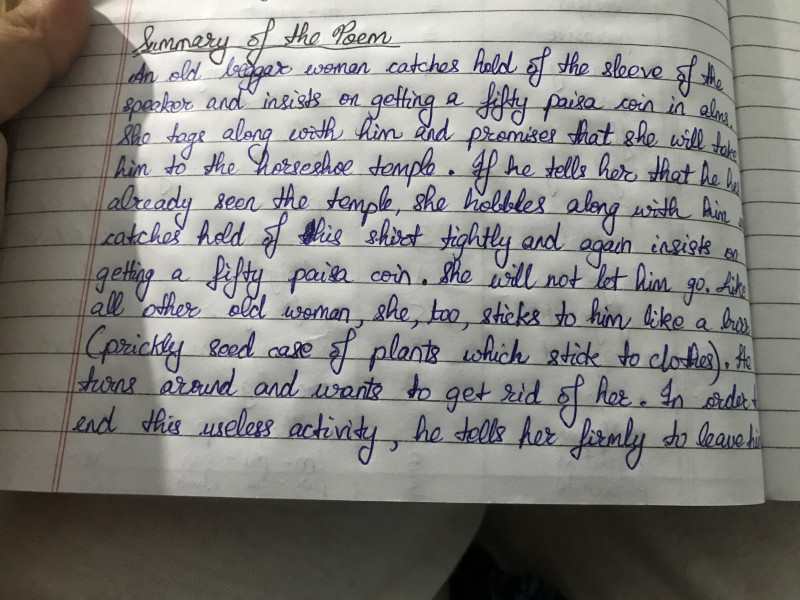 Summary of the Poem
An old beggar woman catches hold of the sleeve of the
speaker and insists on getting a fifty paisa coin in alms.
She tags along with him and promises that she will take
him to the horseshoe temple. If he tells her that he has
already seen the temple, she hobbles along with him
catches hold of his shirt tightly and again insists on
getting a fifty paisa coin. She will not let him go. Like
all other old woman, she, too, sticks to him like a
(prickly seed case of plants which stick to clothes). He
turns around and wants to get rid of her. In order
end this useless activity, he tells her firmly to leave